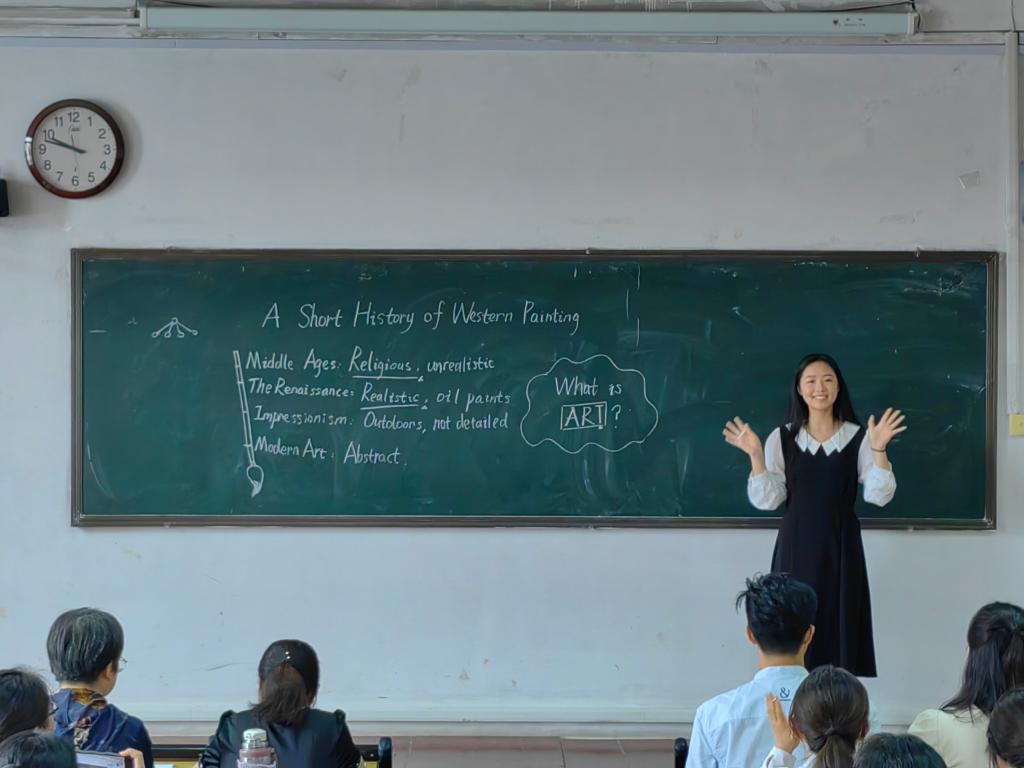 12
1
2
3
4
5
6
7
8
9
10
11
A Short History of Western Painting
Middle Ages: Religious, unrealistic
The Renaissance: Realistic, oil paints
Impressionism: Outdoors, not detailed
Modern Art: Abstract.
What is
ART?
&